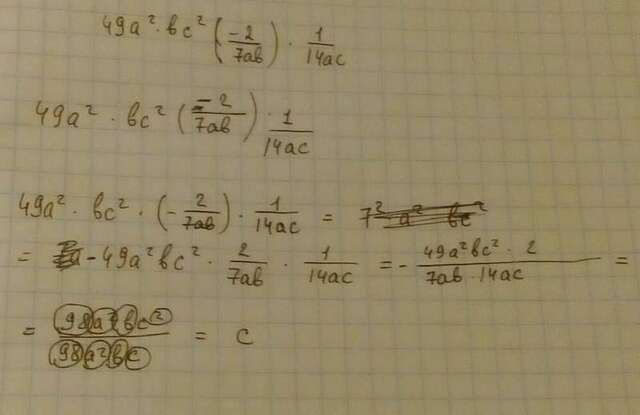 49a² · bc² (-2/7ab) · 1/14ac
49a² · bc² (-2/7ab) · 1/14ac
49a² · bc² · (-2/7ab) · 1/14ac = 7² a² bc²
= -49a²bc² · 2/7ab · 1/14ac = - 49a²bc² · 2/7ab · 14ac =
= 98a²bc²/98a²bc = c